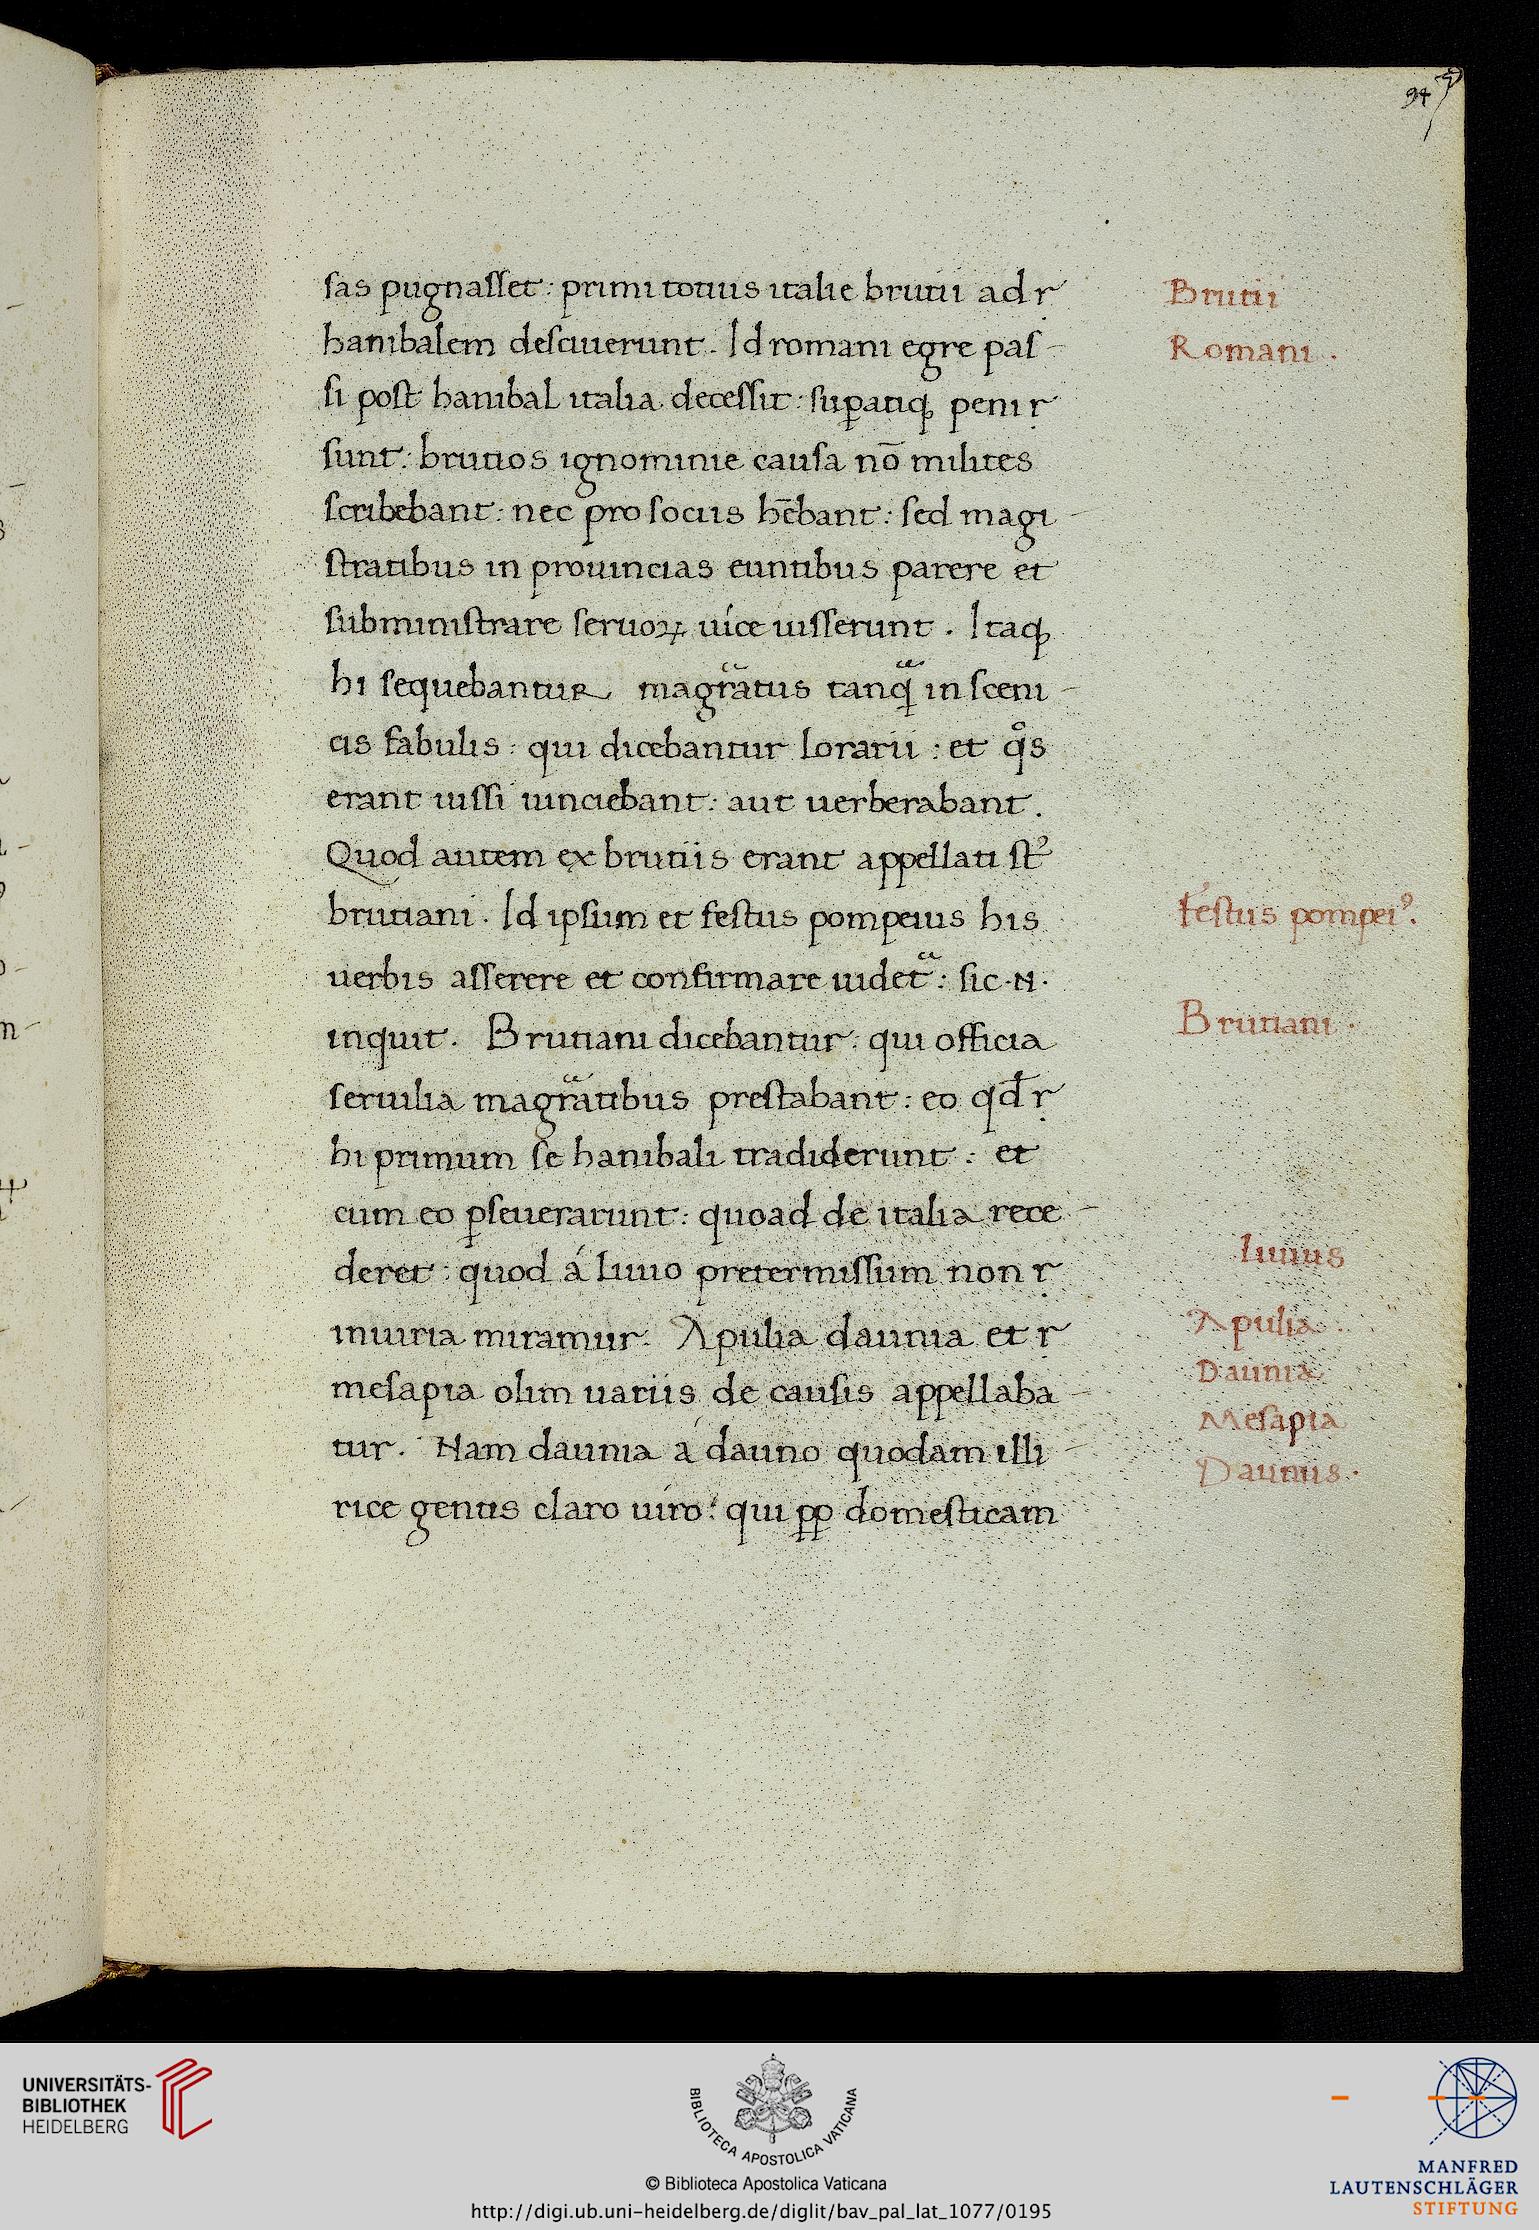 94
sas pugnasset: primi totius italie brutii ad
hanibalem desciuerunt. Id romani egre pas-
si post hanibal italia decessit: suꝑatiqꝫ peni
sunt: brutios ignominie causa nō milites
scribebant: nec pro sociis hēbant: sed magi
stratibus in prouincias euntibus parere et
subministrare seruoꝝ uice iusserunt. Itaqꝫ
hi sequebantur magratus tanq̃ in sceni-
cis fabulis: qui dicebantur lorarii: et qͦs
erant iussi uinciebant: aut uerberabant.
Quod autem ex brutiis erant appellati st᷑
brutiani. Id ipsum et festus pompeius his
uerbis asserere et confirmare uidet᷑: sic .N.
inquit. Brutiani dicebantur: qui officia
seruilia magratibus prestabant: eo qđ
hi primum se hanibali tradiderunt: et
cum eo ꝑseuerarunt: quoad de italia rece-
deret: quod á Liuio pretermissum non
iniuria miramur. Apulia daunia et
mesapia olim uariis de causis appellaba-
tur. Nam daunia á dauno quodam illi-
rice gentis claro uiro: qui ꝓꝑ domesticam
Brutii
Romani.
Festus pompeiꝰ.
Brutiani.
Liuius
Apulia.
Daunia
Mesapia
Daunus.
UNIVERSITÄTS-
BIBLIOTHEK
HEIDELBERG
BIBLIOTECA APOSTOLICA VATICANA
© Biblioteca Apostolica Vaticana
http://digi.ub.uni-heidelberg.de/diglit/bav_pal_lat_1077/0195
MANFRED
LAUTENSCHLÄGER
STIFTUNG